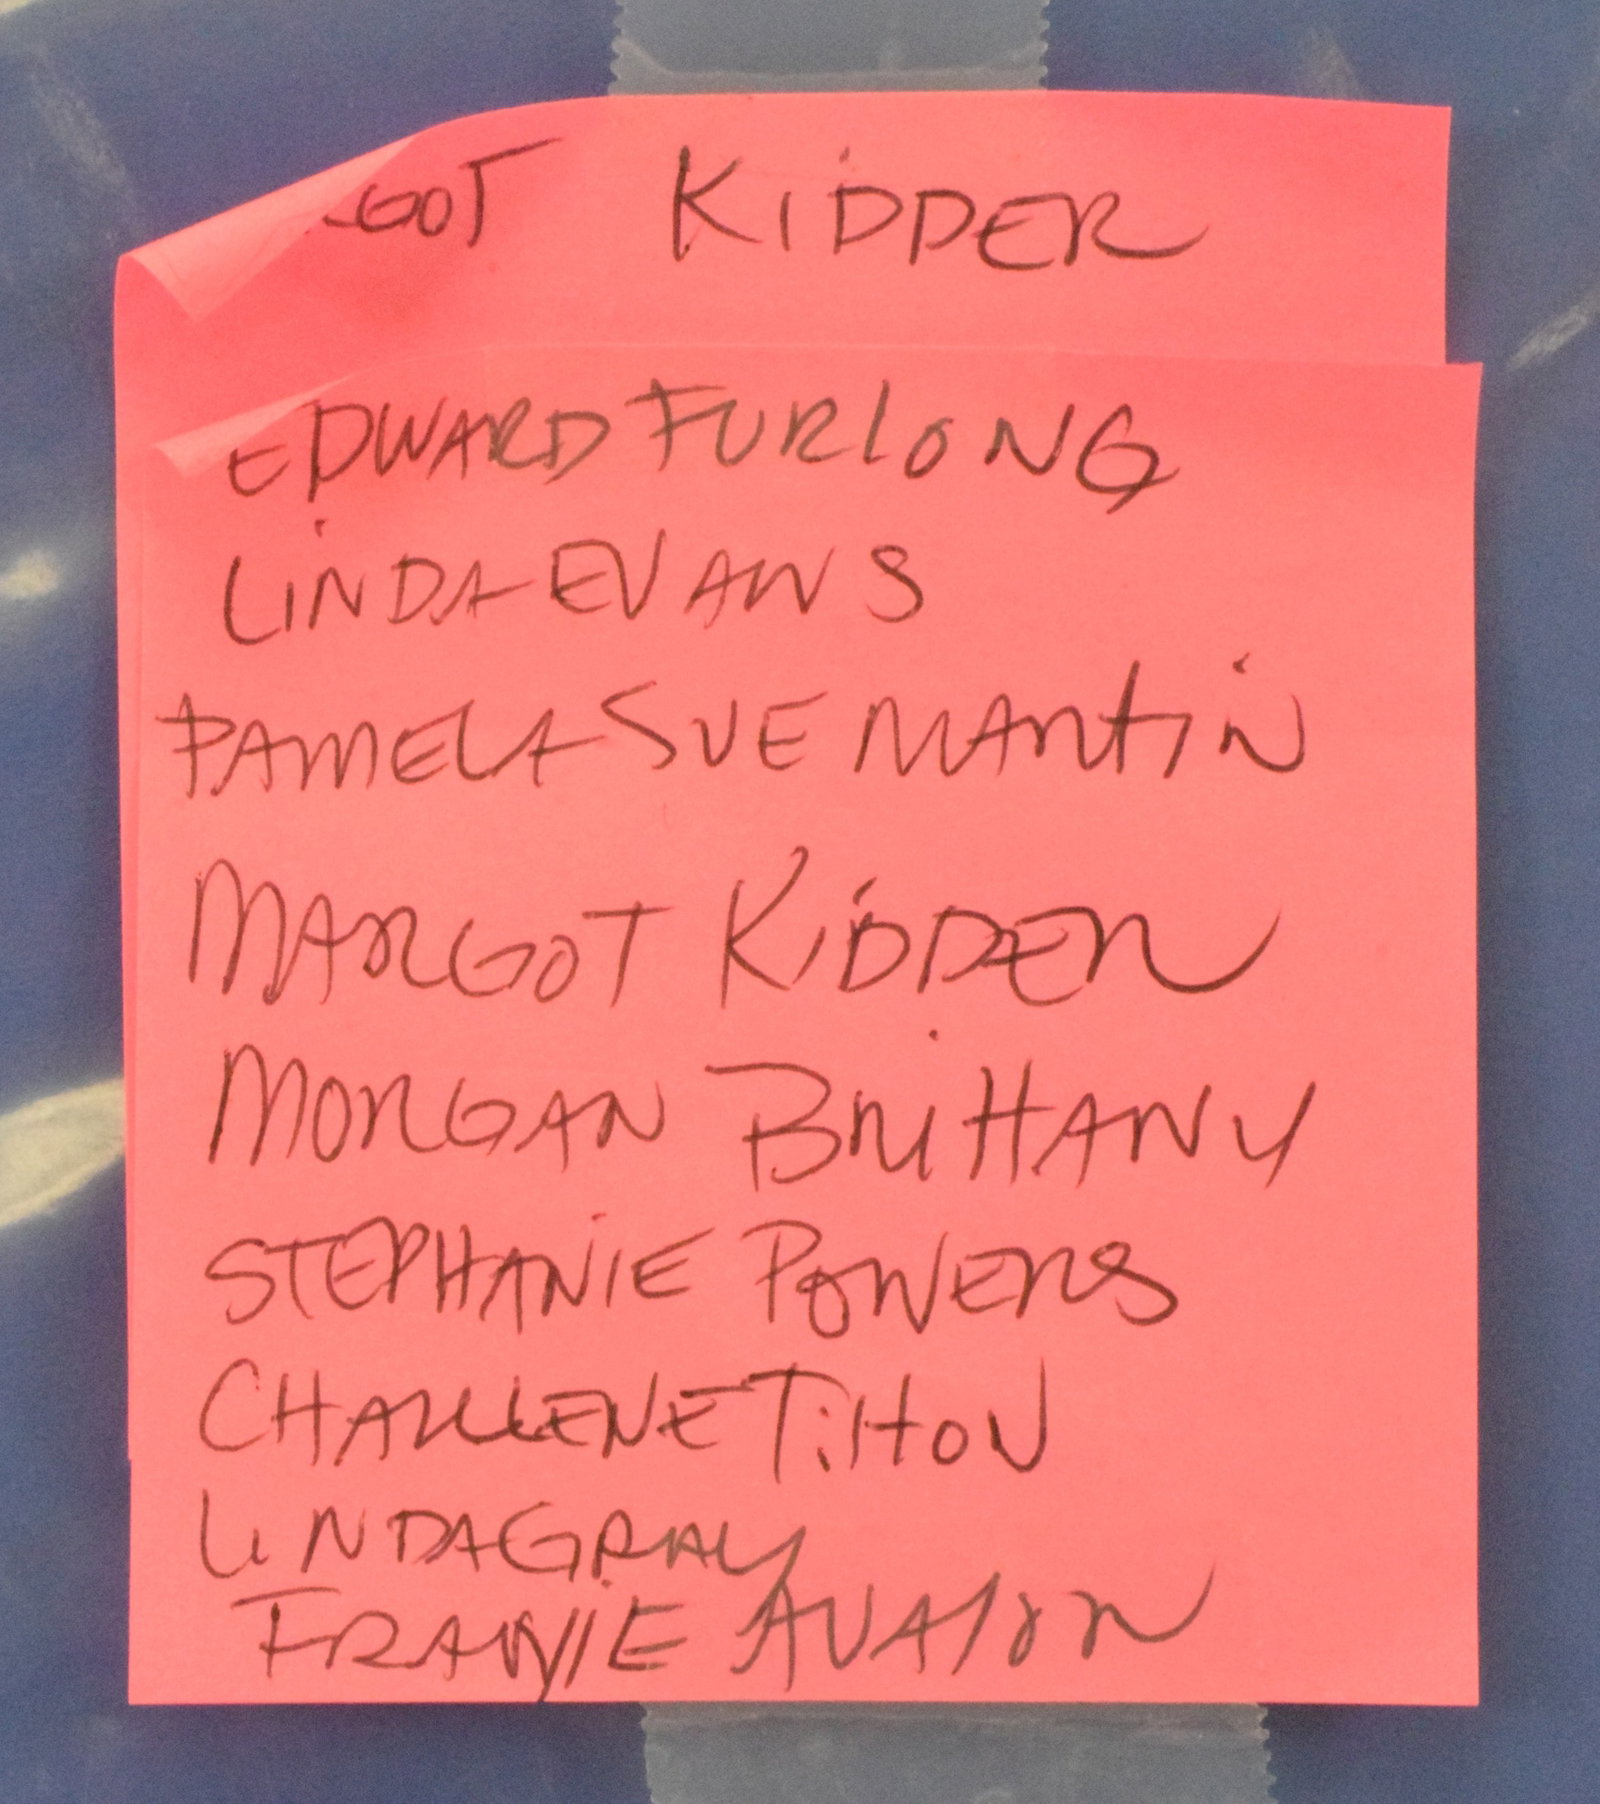 GOT KIDDER
EDWARD FURLONG
LINDA EVANS
PAMELA SUE MARTIN
MARGOT KIDDER
MORGAN BRITTANY
STEPHANIE POWERS
CHARLENE TILTON
LINDA GRAY
AVALON